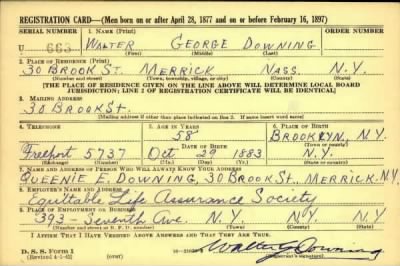 REGISTRATION CARD—(Men born on or after April 28, 1877 and on or before February 16, 1897)
SERIAL NUMBER 1. NAME (Print)
U 663 WALTER GEORGE DOWNING
(First) (Middle) (Last)
2. PLACE OF RESIDENCE (Print)
30 BROOK ST. MERRICK NASS. N.Y.
(Number and street) (Town, township, village, or city) (County) (State)
[THE PLACE OF RESIDENCE GIVEN ON THE LINE ABOVE WILL DETERMINE LOCAL BOARD
JURISDICTION; LINE 2 OF REGISTRATION CERTIFICATE WILL BE IDENTICAL]
3. MAILING ADDRESS
30 BROOK St.
[Mailing address if other than place indicated on line 2. If same insert word same]
4. TELEPHONE 5. AGE IN YEARS 6. PLACE OF BIRTH
58 BROOKLYN, N.Y.
DATE OF BIRTH (Town or county)
Freeport 5737 Oct. 29 1883 N.Y.
(Exchange) (Number) (Mo.) (Day) (Yr.) (State or country)
7. NAME AND ADDRESS OF PERSON WHO WILL ALWAYS KNOW YOUR ADDRESS
QUEENIE E. DOWNING, 30 BROOK St., MERRICK, N.Y.
8. EMPLOYER'S NAME AND ADDRESS
Equitable Life Assurance Society
9. PLACE OF EMPLOYMENT OR BUSINESS
393 - Seventh Ave. N.Y. N.Y.
(Number and street or R. F. D. number) (Town) (County) (State)
I AFFIRM THAT I HAVE VERIFIED ABOVE ANSWERS AND THAT THEY ARE TRUE.
D. S. S. Form 1
(Revised 4-1-42) (over) Walter G Downing